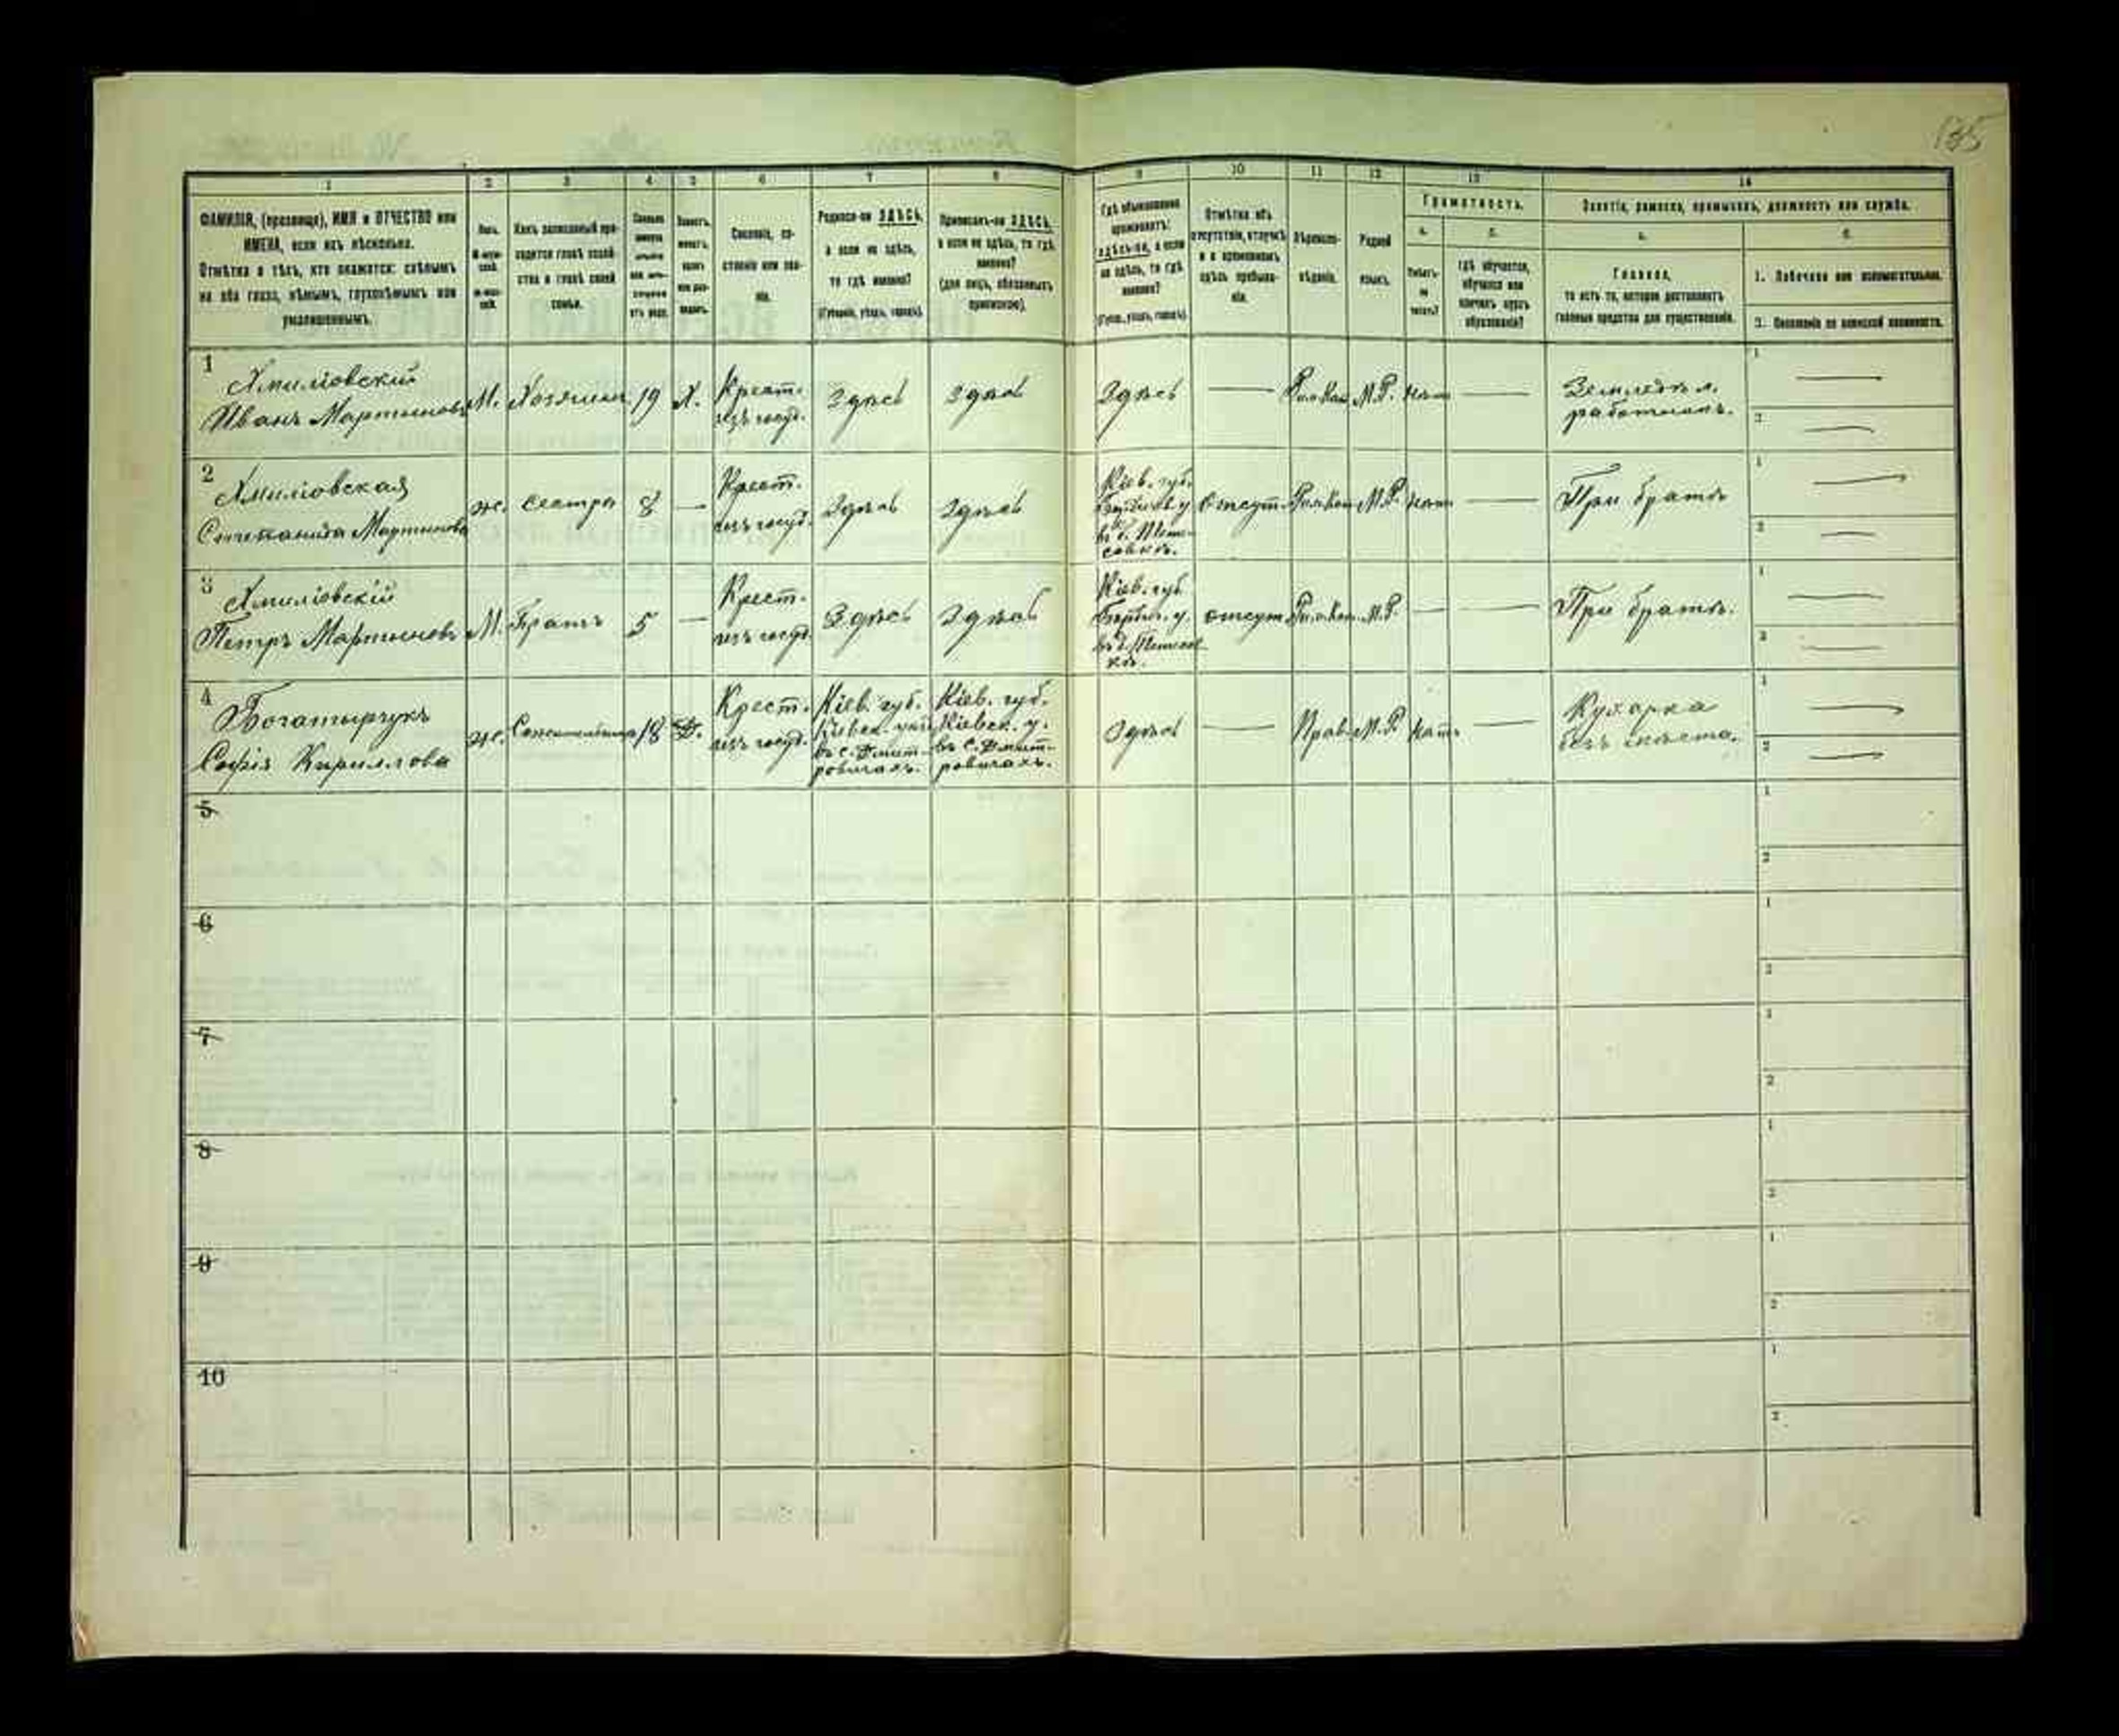 135
1 2 3 4 5 6 7 8 9 10 11 12 13 14
ФАМИЛІЯ, (прозвище), ИМЯ и ОТЧЕСТВО или
ИМЕНА, если ихъ нѣсколько.
Отмѣтка о тѣхъ, кто окажется: слѣпымъ
на оба глаза, нѣмымъ, глухонѣмымъ или
умалишеннымъ.
Полъ.
М-муж-
ской.
Ж-жен-
скій.
Какъ записанный при-
ходится главѣ хозяй-
ства и главѣ своей
семьи.
Холостъ,
женатъ,
вдовъ
или раз-
веденъ.
Сословіе, со-
стояніе или зва-
ніе.
Родился-ли ЗДѢСЬ,
а если не здѣсь,
то гдѣ именно?
(Губернія, уѣздъ, городъ).
Приписанъ-ли ЗДѢСЬ,
а если не здѣсь, то гдѣ
именно?
(для лицъ, обязанныхъ
припискою).
Гдѣ обыкновенно
проживаетъ:
здѣсь-ли, а если
не здѣсь, то гдѣ
именно?
(Губер., уѣздъ, городъ).
Отмѣтка объ
отсутствіи, отлучкѣ
и о временномъ
здѣсь пребыва-
ніи.
Вѣроиспо-
вѣданіе.
Родной
языкъ.
Грамотность.
а.
Умѣетъ-
ли
читать?
б.
Гдѣ обучается,
обучался или
кончилъ курсъ
образованія?
Занятіе, ремесло, промыселъ, должность или служба.
а.
Главное,
то есть то, которое доставляетъ
главныя средства для существованія.
б.
1. Побочное или вспомогательное.
2. Положеніе по воинской повинности.
1
Хмиліовскій
Иванъ Мартиновъ
М. Хозяинъ 19 Х.
Крест.
изъ госуд.
Здѣсь Здѣсь Здѣсь — Рим Кат М.Р. нѣтъ —
Земледѣл.
работникъ.
1 —
2 —
2
Хмиліовская
Степанида Мартинова
ж. сестра 8 —
Крест.
изъ госуд.
Здѣсь Здѣсь
Кіев. губ.
отсут. Рим Кат М.Р. нѣтъ — При братѣ
1 —
2 —
3
Хмиліовскій
Петръ Мартиновъ
М. Братъ 5 —
Крест.
изъ госуд.
Здѣсь Здѣсь
Кіев. губ.
отсут. Рим Кат М.Р. — — При братѣ.
1 —
2 —
4
Богатырчукъ
Софія Кириллова
ж. 18 Д.
Крест.
изъ госуд.
Кіев. губ.
Кіевск. уѣз.
въ с. Дмит-
ровичахъ.
Кіев. губ.
Кіевск. у.
въ с. Дмит-
ровичахъ.
Здѣсь — Прав. М.Р. нѣтъ —
Кухарка
безъ мѣста.
1 —
2 —
5 1
2
6 1
2
7 1
2
8 1
2
9 1
2
10 1
2